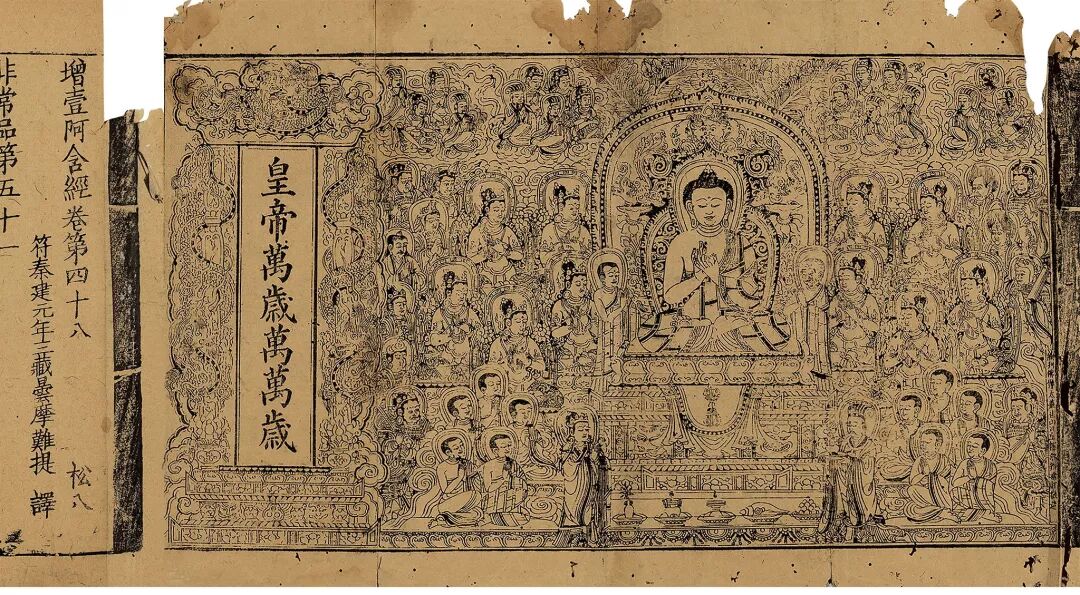 皇帝萬歳萬萬歳
增壹阿含經卷第四十八 松八
符秦建元年三藏曇摩難提 譯
非常品第五十一